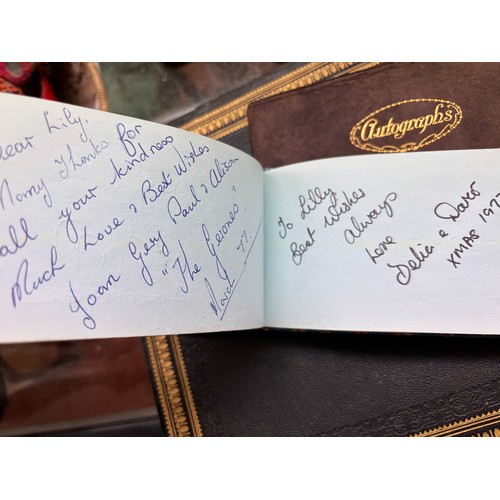 Dear Lily.
Many Thanks for
all your kindness
Much Love & Best Wishes
Joan Gery Paul & Alison
"The Geones"
March 77.
Autographs
To Lilly
Best Wishes
Always
Love
Delia & Dave
XMAS 197